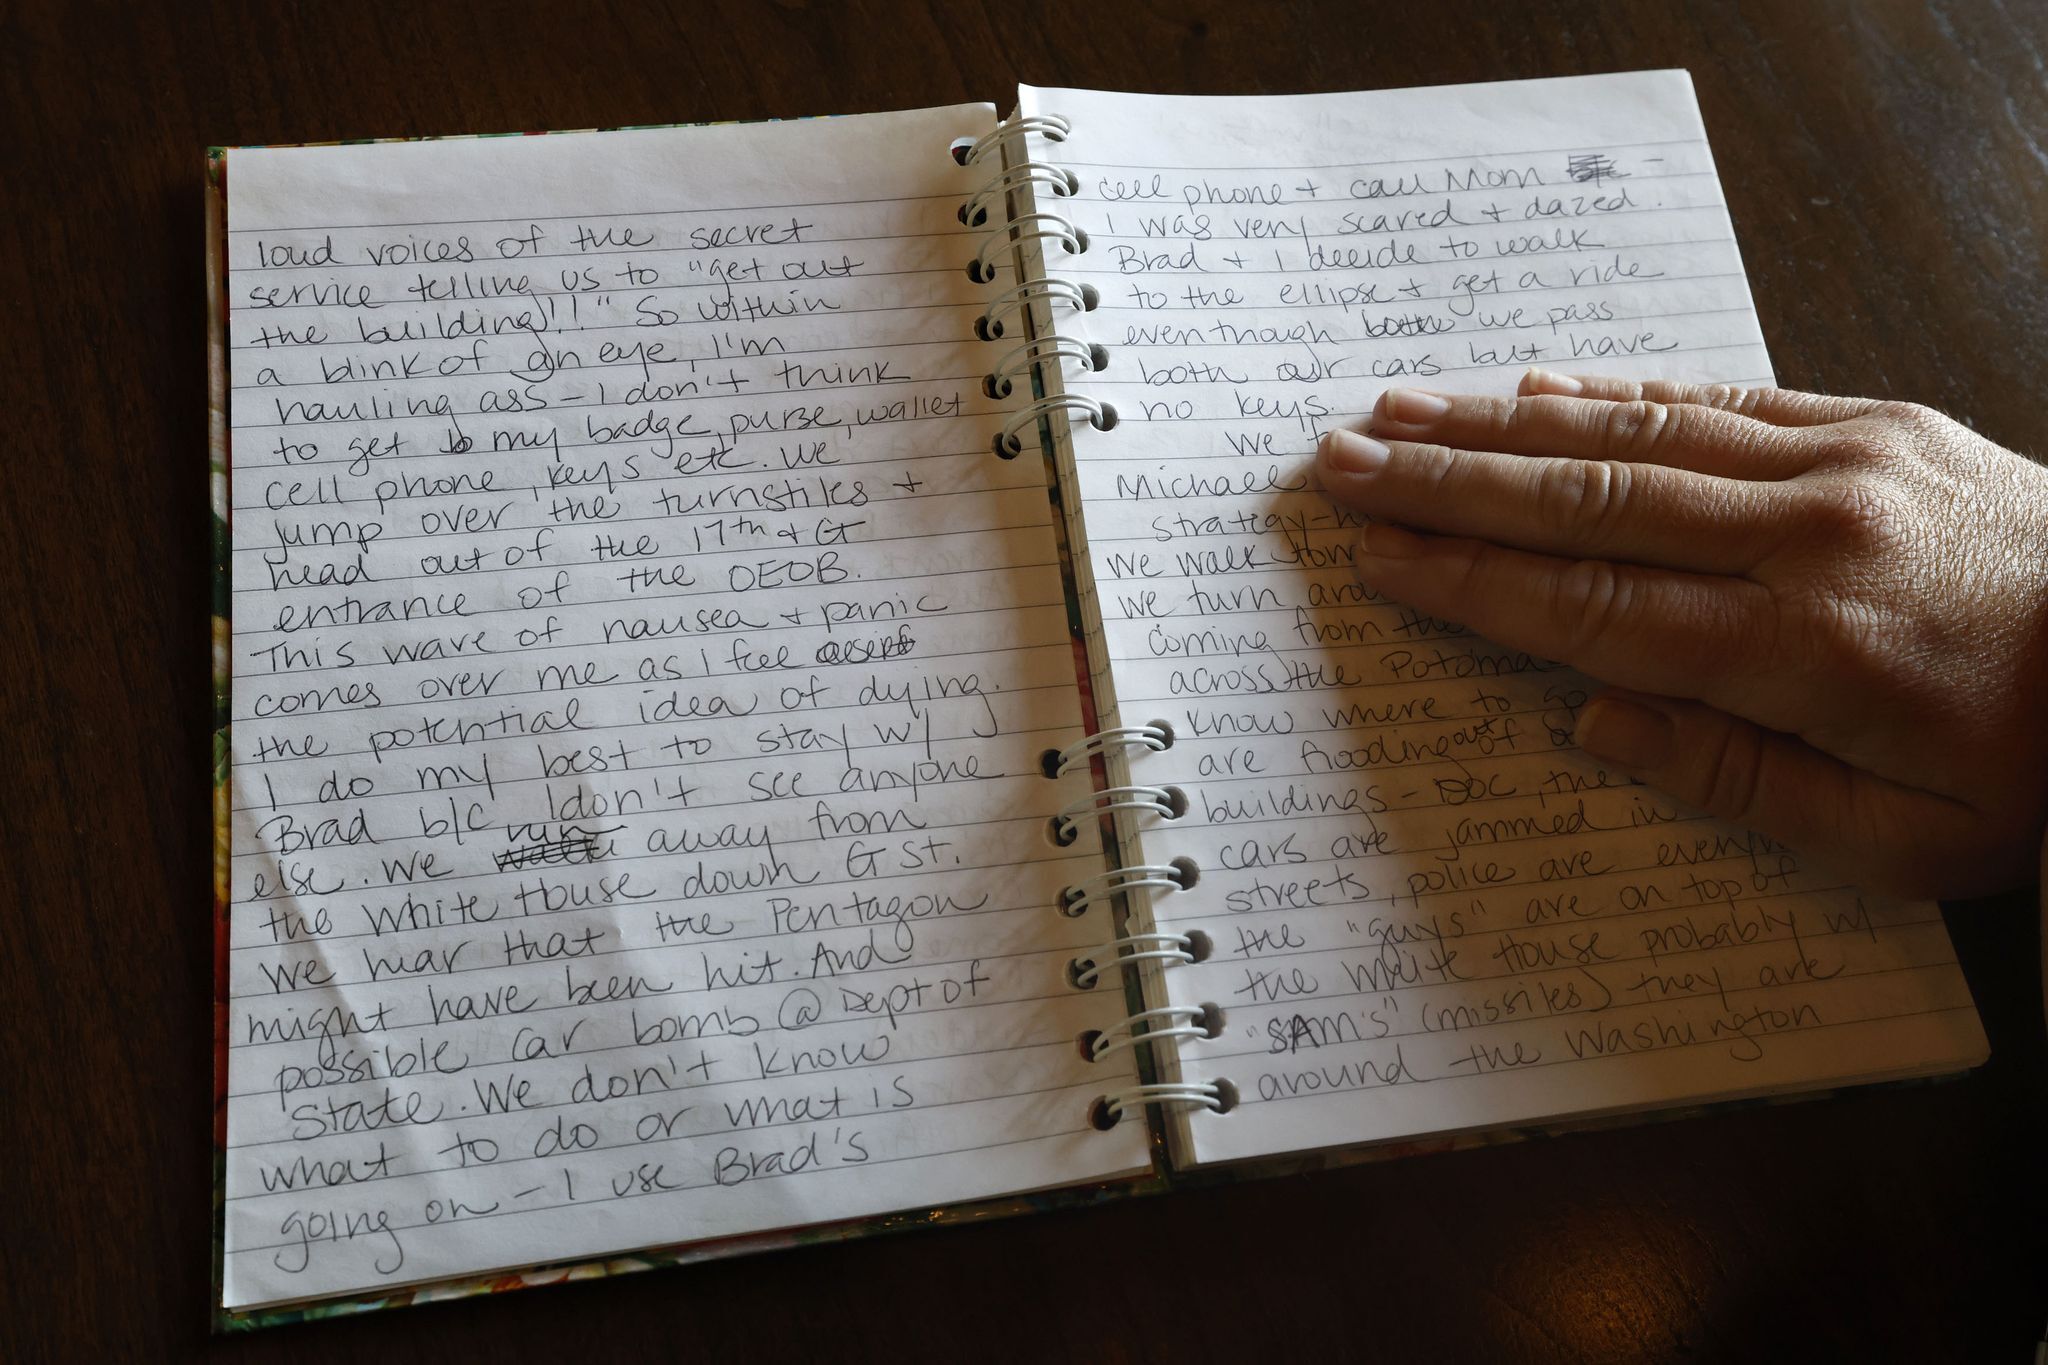 loud voices of the secret
service telling us to "get out
the building!!" So within
a blink of an eye, I'm
hauling ass – I don't think
to get my badge, purse, wallet
cell phone, keys etc. We
jump over the turnstiles +
head out of the 17th + G
entrance of the OEOB.
This wave of nausea + panic
comes over me as I feel
the potential idea of dying.
I do my best to stay w/
Brad b/c I don't see anyone
else. We run away from
the White House down G St.
We hear that the Pentagon
might have been hit. And
possible car bomb @ Dept of
State. We don't know
what to do or what is
going on – I use Brad's
cell phone + call Mom –
I was very scared + dazed.
Brad + I decide to walk
to the ellipse + get a ride
even though both we pass
both our cars but have
no keys.
We
Michael
strategy-
We walk
we turn
coming from the
across the
know where to go
are flooding out of
buildings – DOC, the
cars are jammed in
streets, police are
the "guys" are on top of
the White House probably w/
"SAM's" (missiles) they are
around the Washington